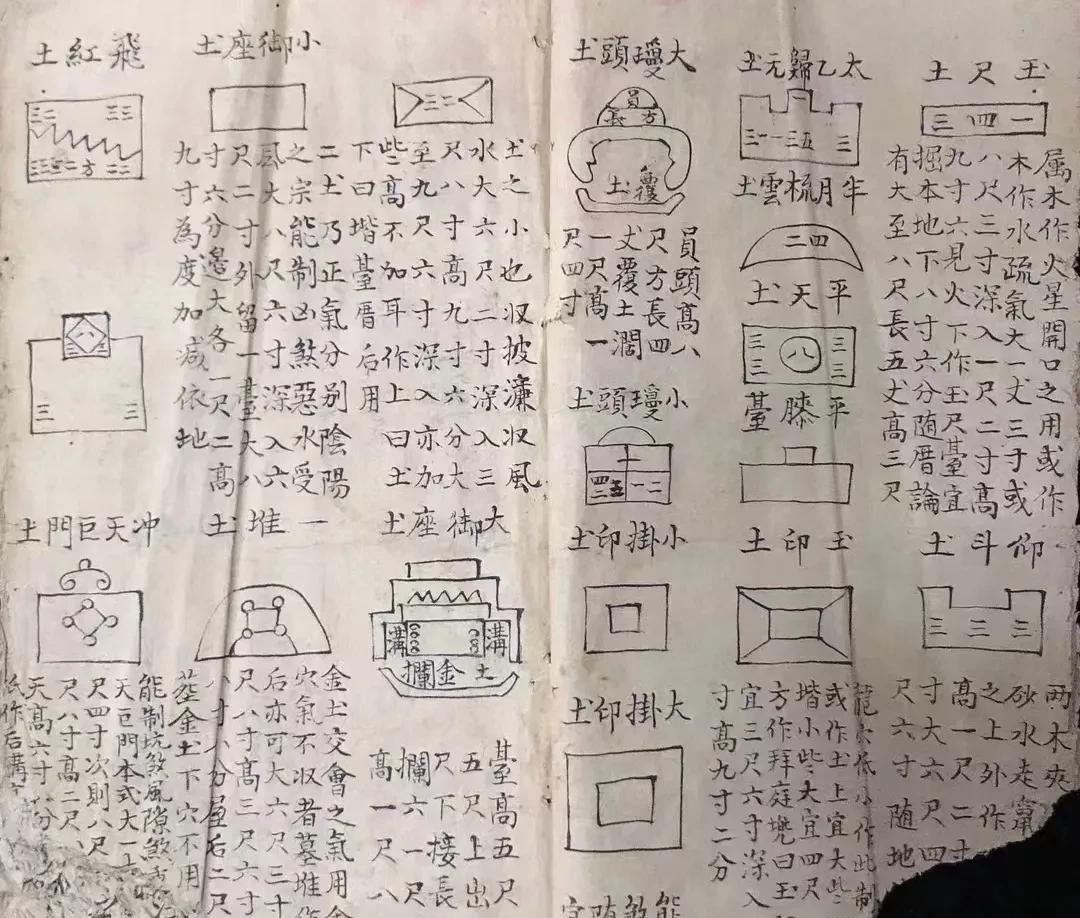 玉尺土
一四三
属木作火星開口之用或作
木作水疏氣大一丈三于或
八尺三寸深入一尺二寸高
九寸六見火下作玉尺臺宜
掘本地下八寸六分随厝論
有大至八尺長五丈高三尺
仰斗土
三三三
两木夾
砂水走
之上外作
高一尺二寸
寸大六尺四
尺六寸随地
太乙歸元土
半月梳雲土
四二
平天土
三三
八
三三
平膝臺
玉印土
龍穴低小作此制
或作土上宜大些
堦小些大宜四尺
方作拜庭堍曰玉
宜三尺六寸深入
寸高九寸二分
大璎頭土
員
方長
覆土
員頭高八
尺方長四
丈覆土濶
一尺高一
尺四寸
小璎頭土
小掛印土
大掛印土
小御座土
土之小也収披濂収風
水大六尺二寸深入三
尺八寸高九寸六分大
至九尺六寸深入亦加
些高不加耳作上曰土
下曰堦臺厝后用
二土乃正氣分别陰陽
之宗能制凶煞惡水受
風大八尺六寸深入六
尺二寸外留一臺大八
寸六分邊大各一尺二高
九寸為度加减依地
飛紅土
八
三三
大御座土
溝溝
土金攔
臺高五尺
五尺上出
尺下接長
攔六一尺
高一尺八
一堆土
金土交會之氣用金
穴氣不収者墓堆作
后亦可大六尺三寸
尺八寸高三尺六寸
八寸八分厝后二尺
金土下穴不用
冲天巨門土
能制坑煞風隙煞
天巨門本式大一丈
尺四寸次則八尺
尺八寸高二尺八
天高六寸